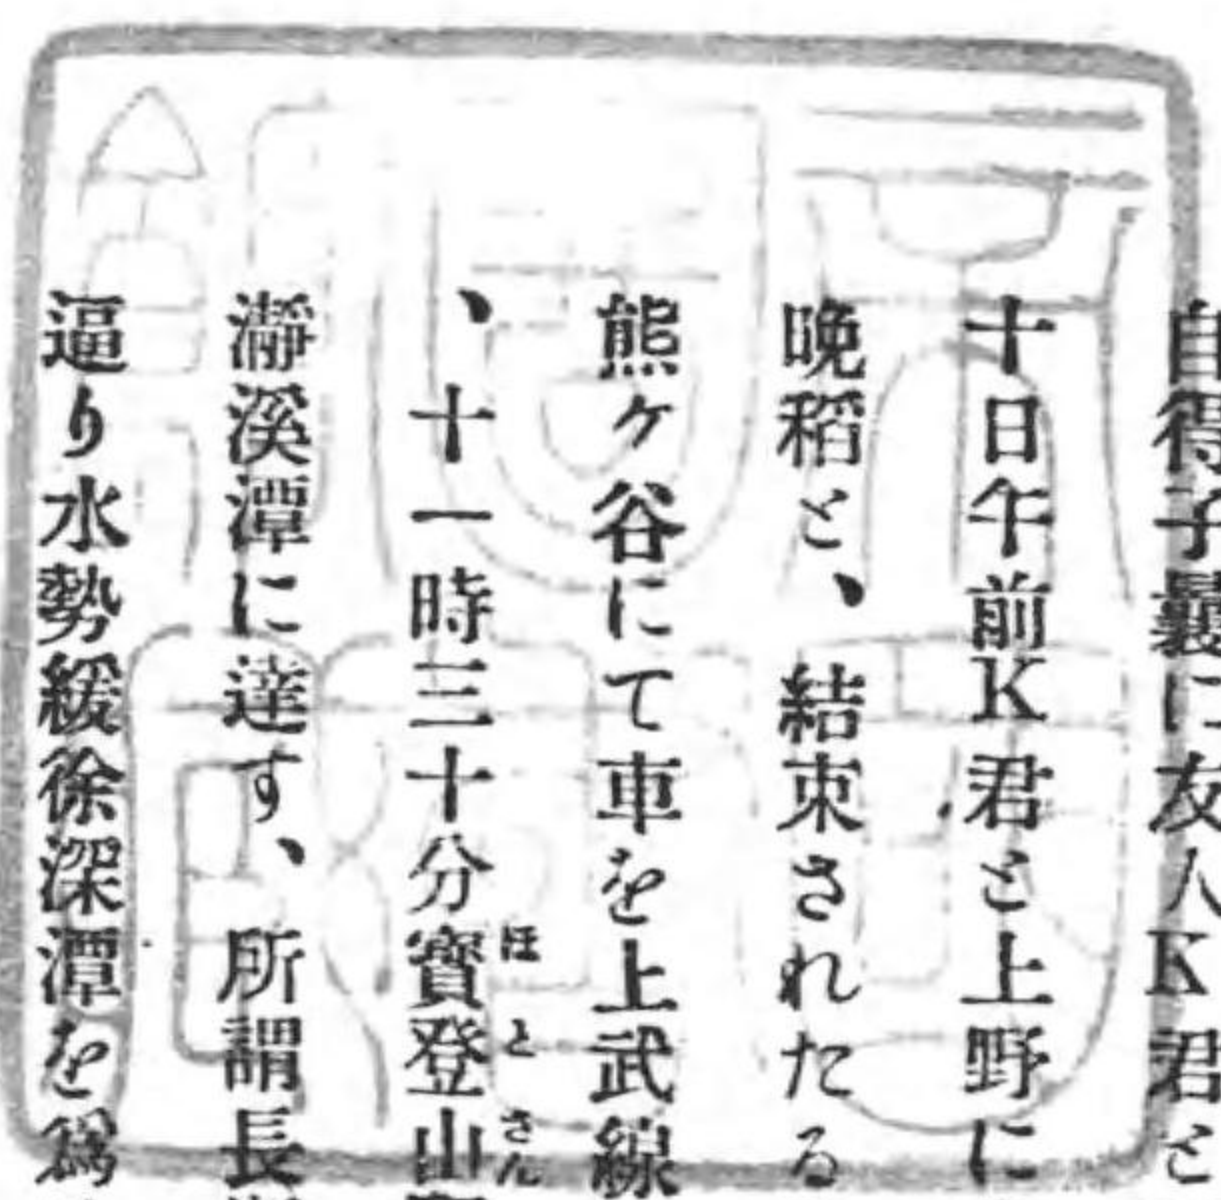 自得子曩に友人K君と
十日午前K君と上野に
晩稻と、結束されたる
熊ヶ谷にて車を上武線
、十一時三十分寶登山
瀞溪潭に達す、所謂長
逼り水勢緩徐深潭を爲